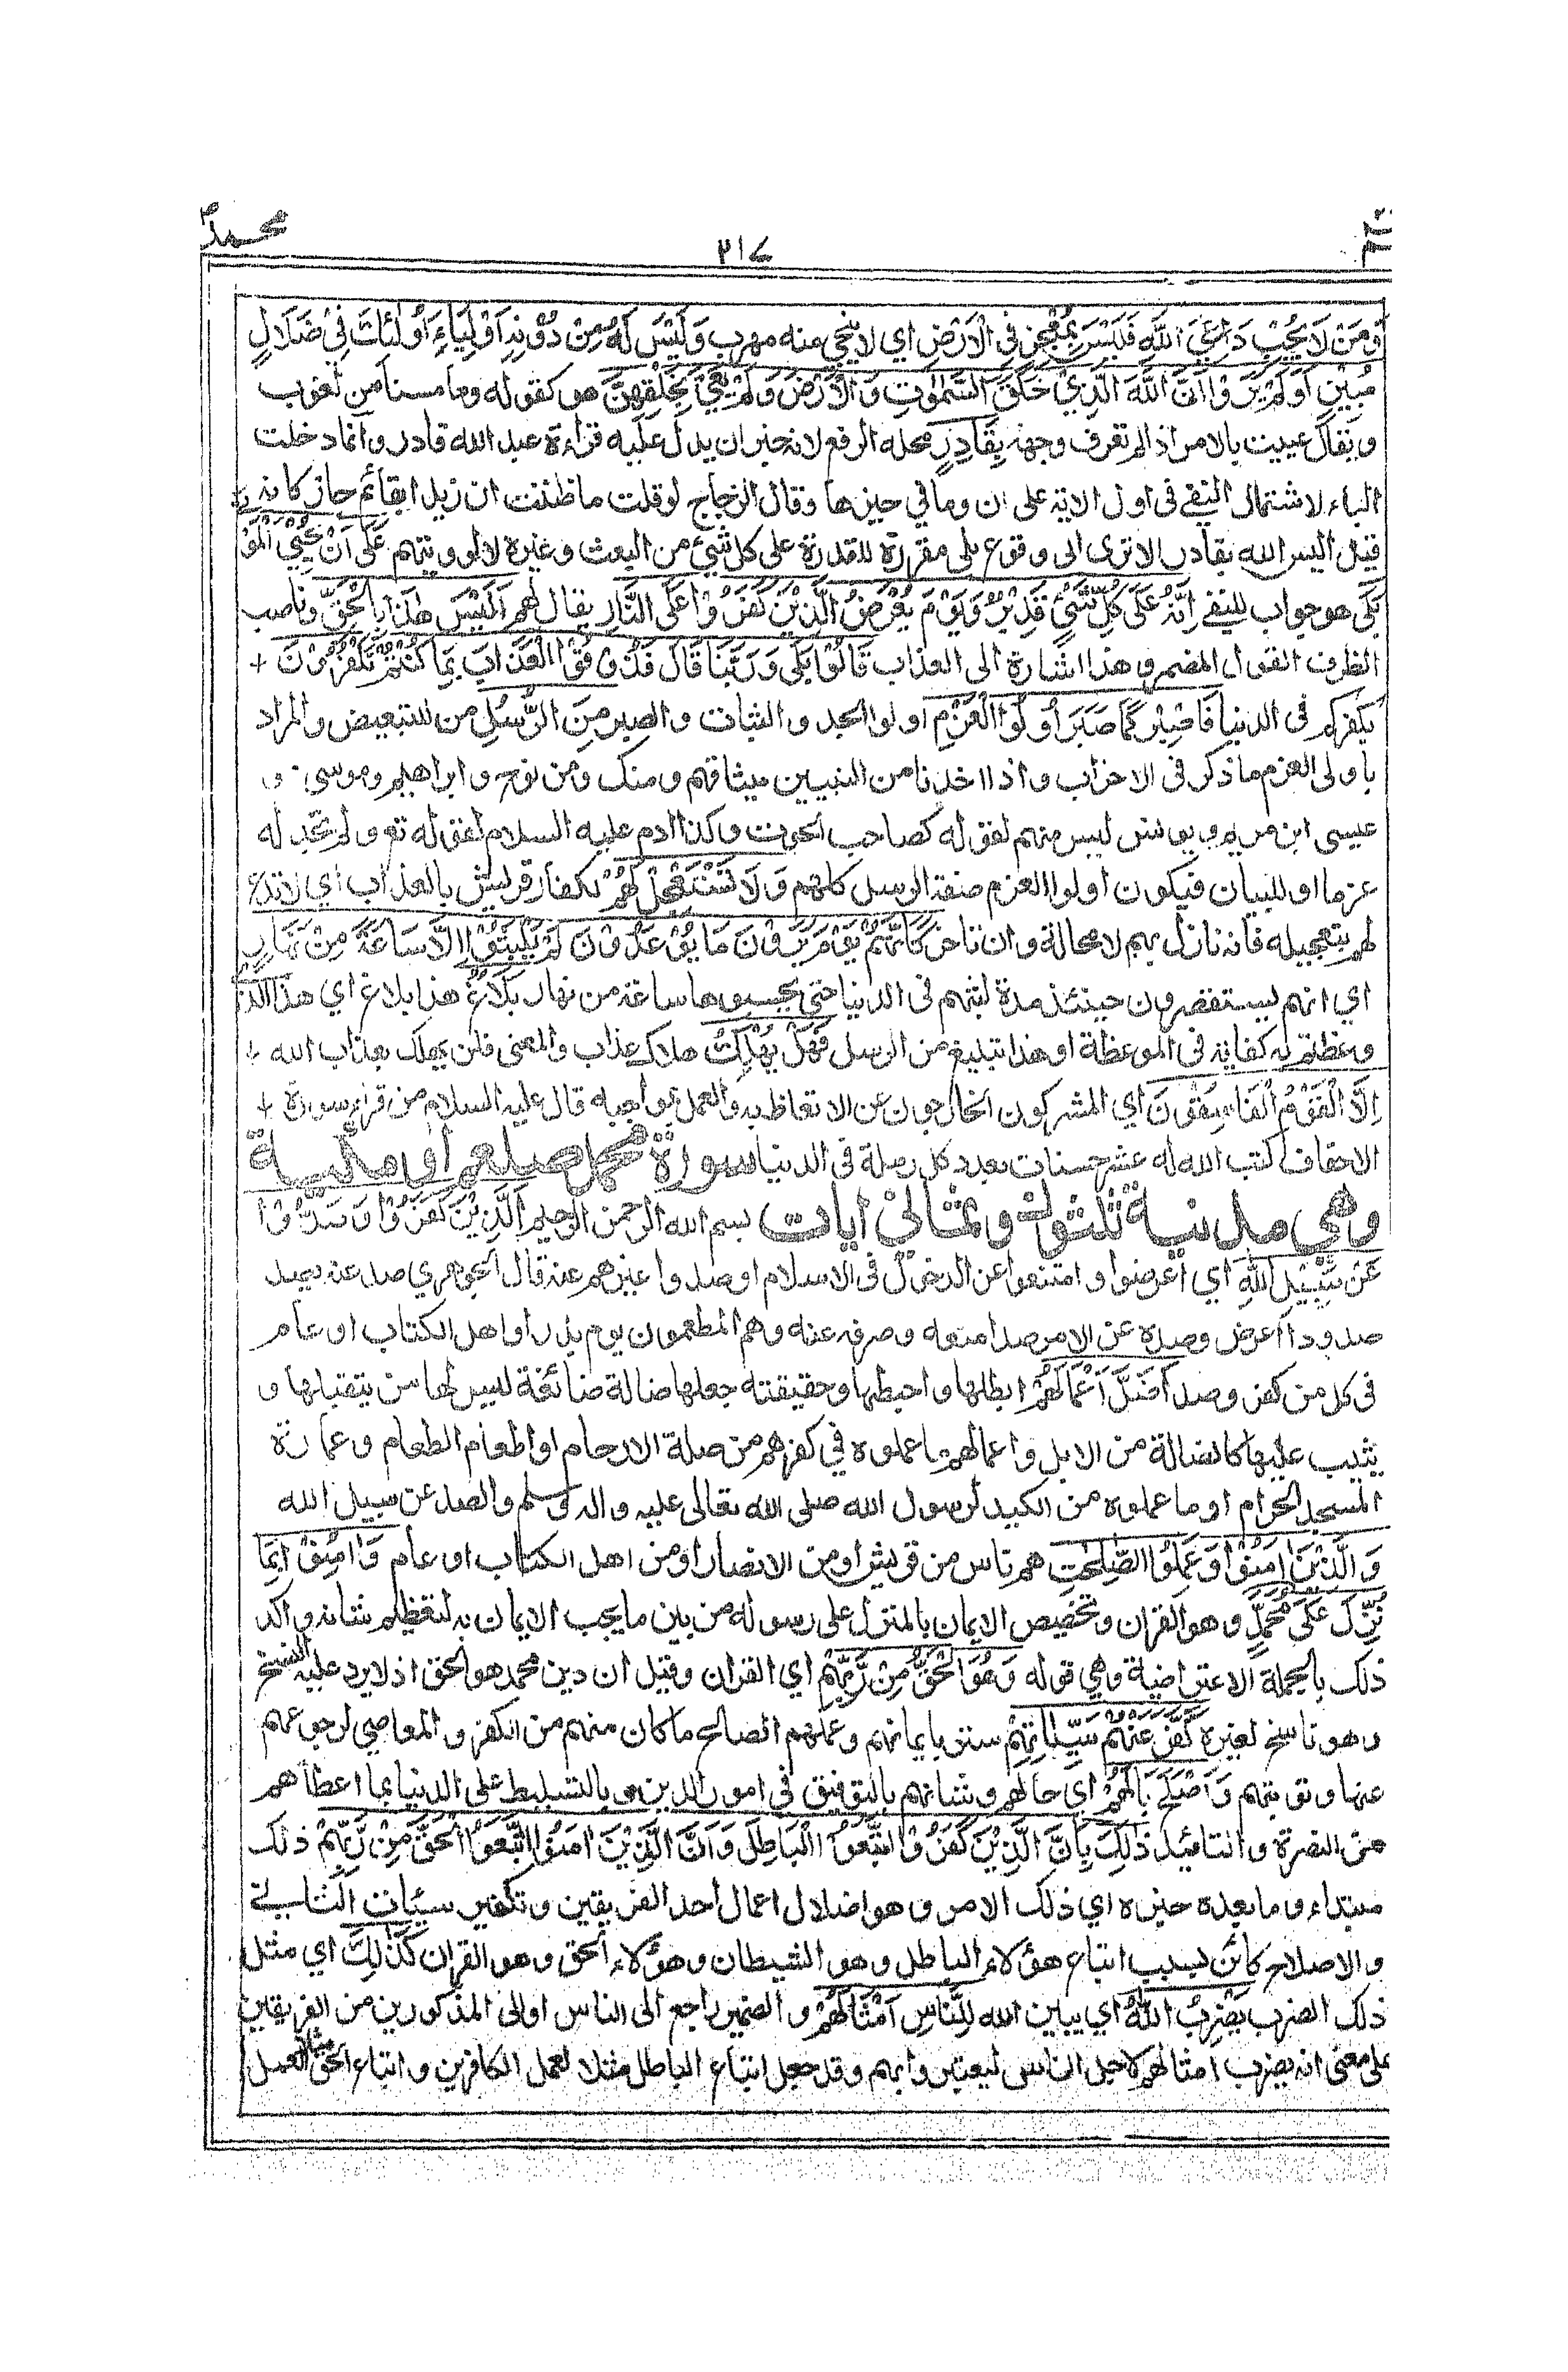 حم ٢١٧ محمد
وَمَنْ لَا يُجِبْ دَاعِيَ اللَّهِ فَلَيْسَ بِمُعْجِزٍ فِي الْاَرْضِ اي لا ينجي منه مهرب وَلَيْسَ لَهُ مِنْ دُوْنِهِ اَوْلِيَاءُ اُولٰئِكَ فِيْ ضَلَالٍ
مُبِيْنٍ اَوَلَمْ يَرَوْا اَنَّ اللَّهَ الَّذِيْ خَلَقَ السَّمٰوٰتِ وَالْاَرْضَ وَلَمْ يَعْيَ بِخَلْقِهِنَّ هو كقوله وما مسنا من لغوب
ويقال عييت بالامر اذا لم تعرف وجهه بِقَادِرٍ محله الرفع لانه خبر ان يدل عليه قراءة عبد الله قادر وانما دخلت
الباء لاشتمال النفي في اول الاية على ان وما في حيزها وقال الزجاج لو قلت ما ظننت ان زيدا بقائم جاز كانه
قيل اليس الله بقادر الا ترى الى وقوع بلى مقررة للقدرة على كل شيئ من البعث وغيره لا لرويتهم عَلٰى اَنْ يُحْيِيَ الْمَوْ
بَلٰى هو جواب للنفي اِنَّهُ عَلٰى كُلِّ شَيْئٍ قَدِيْرٌ وَيَوْمَ يُعْرَضُ الَّذِيْنَ كَفَرُوْا عَلَى النَّارِ يقال لهم اَلَيْسَ هٰذَا بِالْحَقِّ وناصب
الظرف القول المضمر وهذا اشارة الى العذاب قَالُوْا بَلٰى وَرَبِّنَا قَالَ فَذُوْقُوْا الْعَذَابَ بِمَا كُنْتُمْ تَكْفُرُوْنَ +
بكفركم في الدنيا فَاصْبِرْ كَمَا صَبَرَ اُولُوا الْعَزْمِ اولوا الجد والثبات والصبر مِنَ الرُّسُلِ من للتبعيض والمراد
باولى العزم ما ذكر في الاحزاب واذ اخذنا من النبيين ميثاقهم ومنك ومن نوح وابراهيم وموسى و
عيسى ابن مريم ويونس ليس منهم لقوله كصاحب الحوت وكذا ادم عليه السلام لقوله تع ولم نجد له
عزما او للبيان فيكون اولوا العزم صفة الرسل كلهم وَلَا تَسْتَعْجِلْ لَهُمْ لكفار قريش بالعذاب اي لا تدع
لهم بتعجيله فانه نازل بهم لا محالة وان تاخر كَاَنَّهُمْ يَوْمَ يَرَوْنَ مَا يُوْعَدُوْنَ لَمْ يَلْبَثُوْا اِلَّا سَاعَةً مِنْ نَهَارٍ
اي انهم يستقصرون حينئذ مدة لبثهم في الدنيا حتى يحسبوها ساعة من نهار بَلَاغٌ هذا بلاغ اي هذا الذي
وعظتم به كفاية في الموعظة او هذا تبليغ من الرسل فَهَلْ يُهْلَكُ هلاك عذاب والمعنى فلن يهلك بعذاب الله +
اِلَّا الْقَوْمُ الْفَاسِقُوْنَ اي المشركون الخارجون عن الاتعاظ به والعمل بواجبه قال عليه السلام من قرء سورة +
الاحقاف كتب الله له عشر حسنات بعدد كل رملة في الدنيا سورة محمد صلعم او مكية
وهي مدنية ثلثون وثماني ايات بسم الله الرحمن الرحيم اَلَّذِيْنَ كَفَرُوْا وَصَدُّوْا
عَنْ سَبِيْلِ اللّٰهِ اي اعرضوا وامتنعوا عن الدخول في الاسلام او صدوا غيرهم عنه قال الجوهري صد عنه يصد
صدودا اعرض وصده عن الامر صدا منعه وصرفه عنه وهم المطعمون يوم بدر او اهل الكتاب او عام
في كل من كفر وصد اَضَلَّ اَعْمَالَهُمْ ابطلها واحبطها وحقيقته جعلها ضالة ضائعة ليس لها من يتقبلها و
يثيب عليها كالضالة من الابل واعمالهم ما عملوه في كفرهم من صلة الارحام او اطعام الطعام وعمارة
المسجد الحرام او ما عملوه من الكيد لرسول الله صلى الله تعالى عليه واله وسلم والصد عن سبيل الله
وَالَّذِيْنَ اٰمَنُوْا وَعَمِلُوا الصّٰلِحٰتِ هم ناس من قريش او من الانصار او من اهل الكتاب او عام وَاٰمَنُوْا بِمَا
نُزِّلَ عَلٰى مُحَمَّدٍ وهو القران وتخصيص الايمان بالمنزل على رسوله من بين ما يجب الايمان به لتعظيم شانه واكد
ذلك بالجملة الاعتراضية وهي قوله وَهُوَ الْحَقُّ مِنْ رَبِّهِمْ اي القران وقيل ان دين محمد هو الحق اذ لا يرد عليه النسخ
وهو ناسخ لغيره كَفَّرَ عَنْهُمْ سَيِّاٰتِهِمْ ستر بايمانهم وعملهم الصالح ما كان منهم من الكفر والمعاصي لرجوعهم
عنها وتوبتهم وَاَصْلَحَ بَالَهُمْ اي حالهم وشانهم بالتوفيق في امور الدين وبالتسليط على الدنيا بما اعطاهم
من النصرة والتائيد ذٰلِكَ بِاَنَّ الَّذِيْنَ كَفَرُوْا اتَّبَعُوا الْبَاطِلَ وَاَنَّ الَّذِيْنَ اٰمَنُوا اتَّبَعُوا الْحَقَّ مِنْ رَّبِّهِمْ ذلك
مبتداء وما بعده خبره اي ذلك الامر وهو اضلال اعمال احد الفريقين وتكفير سيئات الثاني
والاصلاح كائن بسبب اتباع هؤلاء الباطل وهو الشيطان وهؤلاء الحق وهو القران كَذٰلِكَ اي مثل
ذلك الضرب يَضْرِبُ اللّٰهُ اي يبين الله لِلنَّاسِ اَمْثَالَهُمْ والضمير راجع الى الناس او الى المذكورين من الفريقين
على معنى انه يضرب امثالهم لاجل الناس ليعتبروا بهم وقد جعل اتباع الباطل مثلا لعمل الكافرين واتباع الحق مثلا لعمل